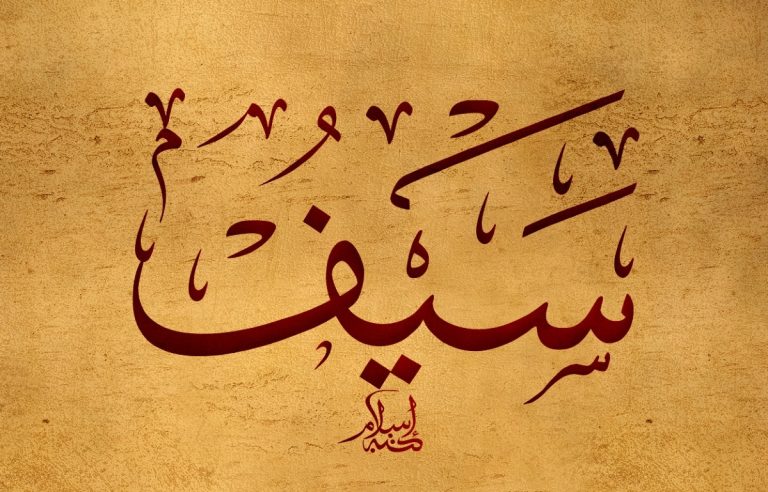 سَيفُ
كتبه إسلام